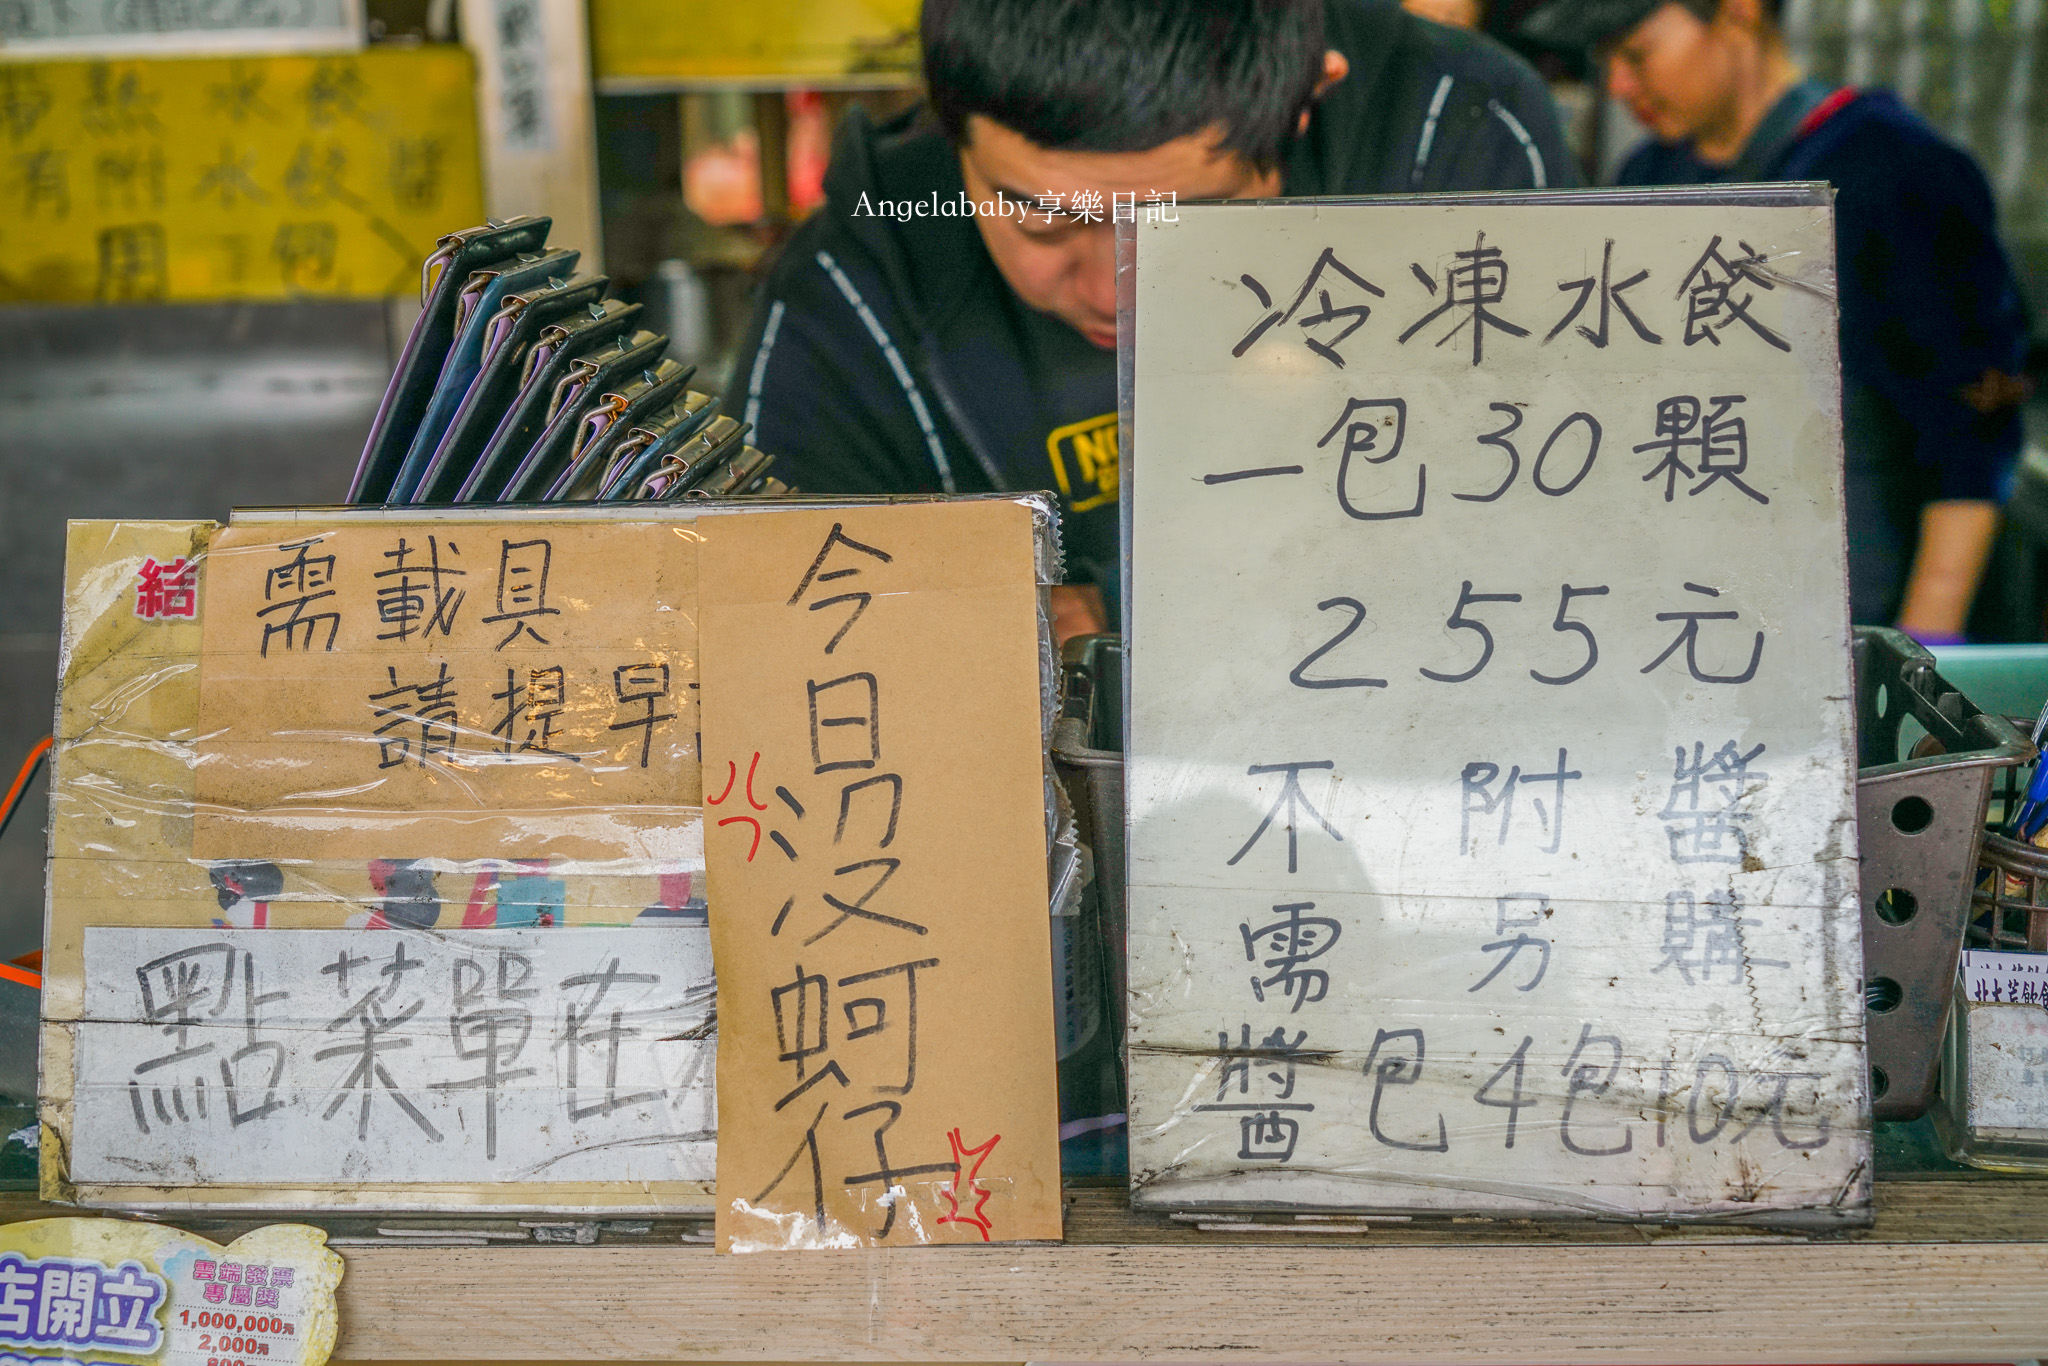 熱水餃
有附水餃醬
用 包
Angelababy享樂日記
冷凍水餃
一包30顆
255元
不附醬
需另購
醬包4包10元
結
需載具
請提早
點菜單在
今日沒蚵仔
店開立
雲端發票
專屬獎
1,000,000元
2,000元